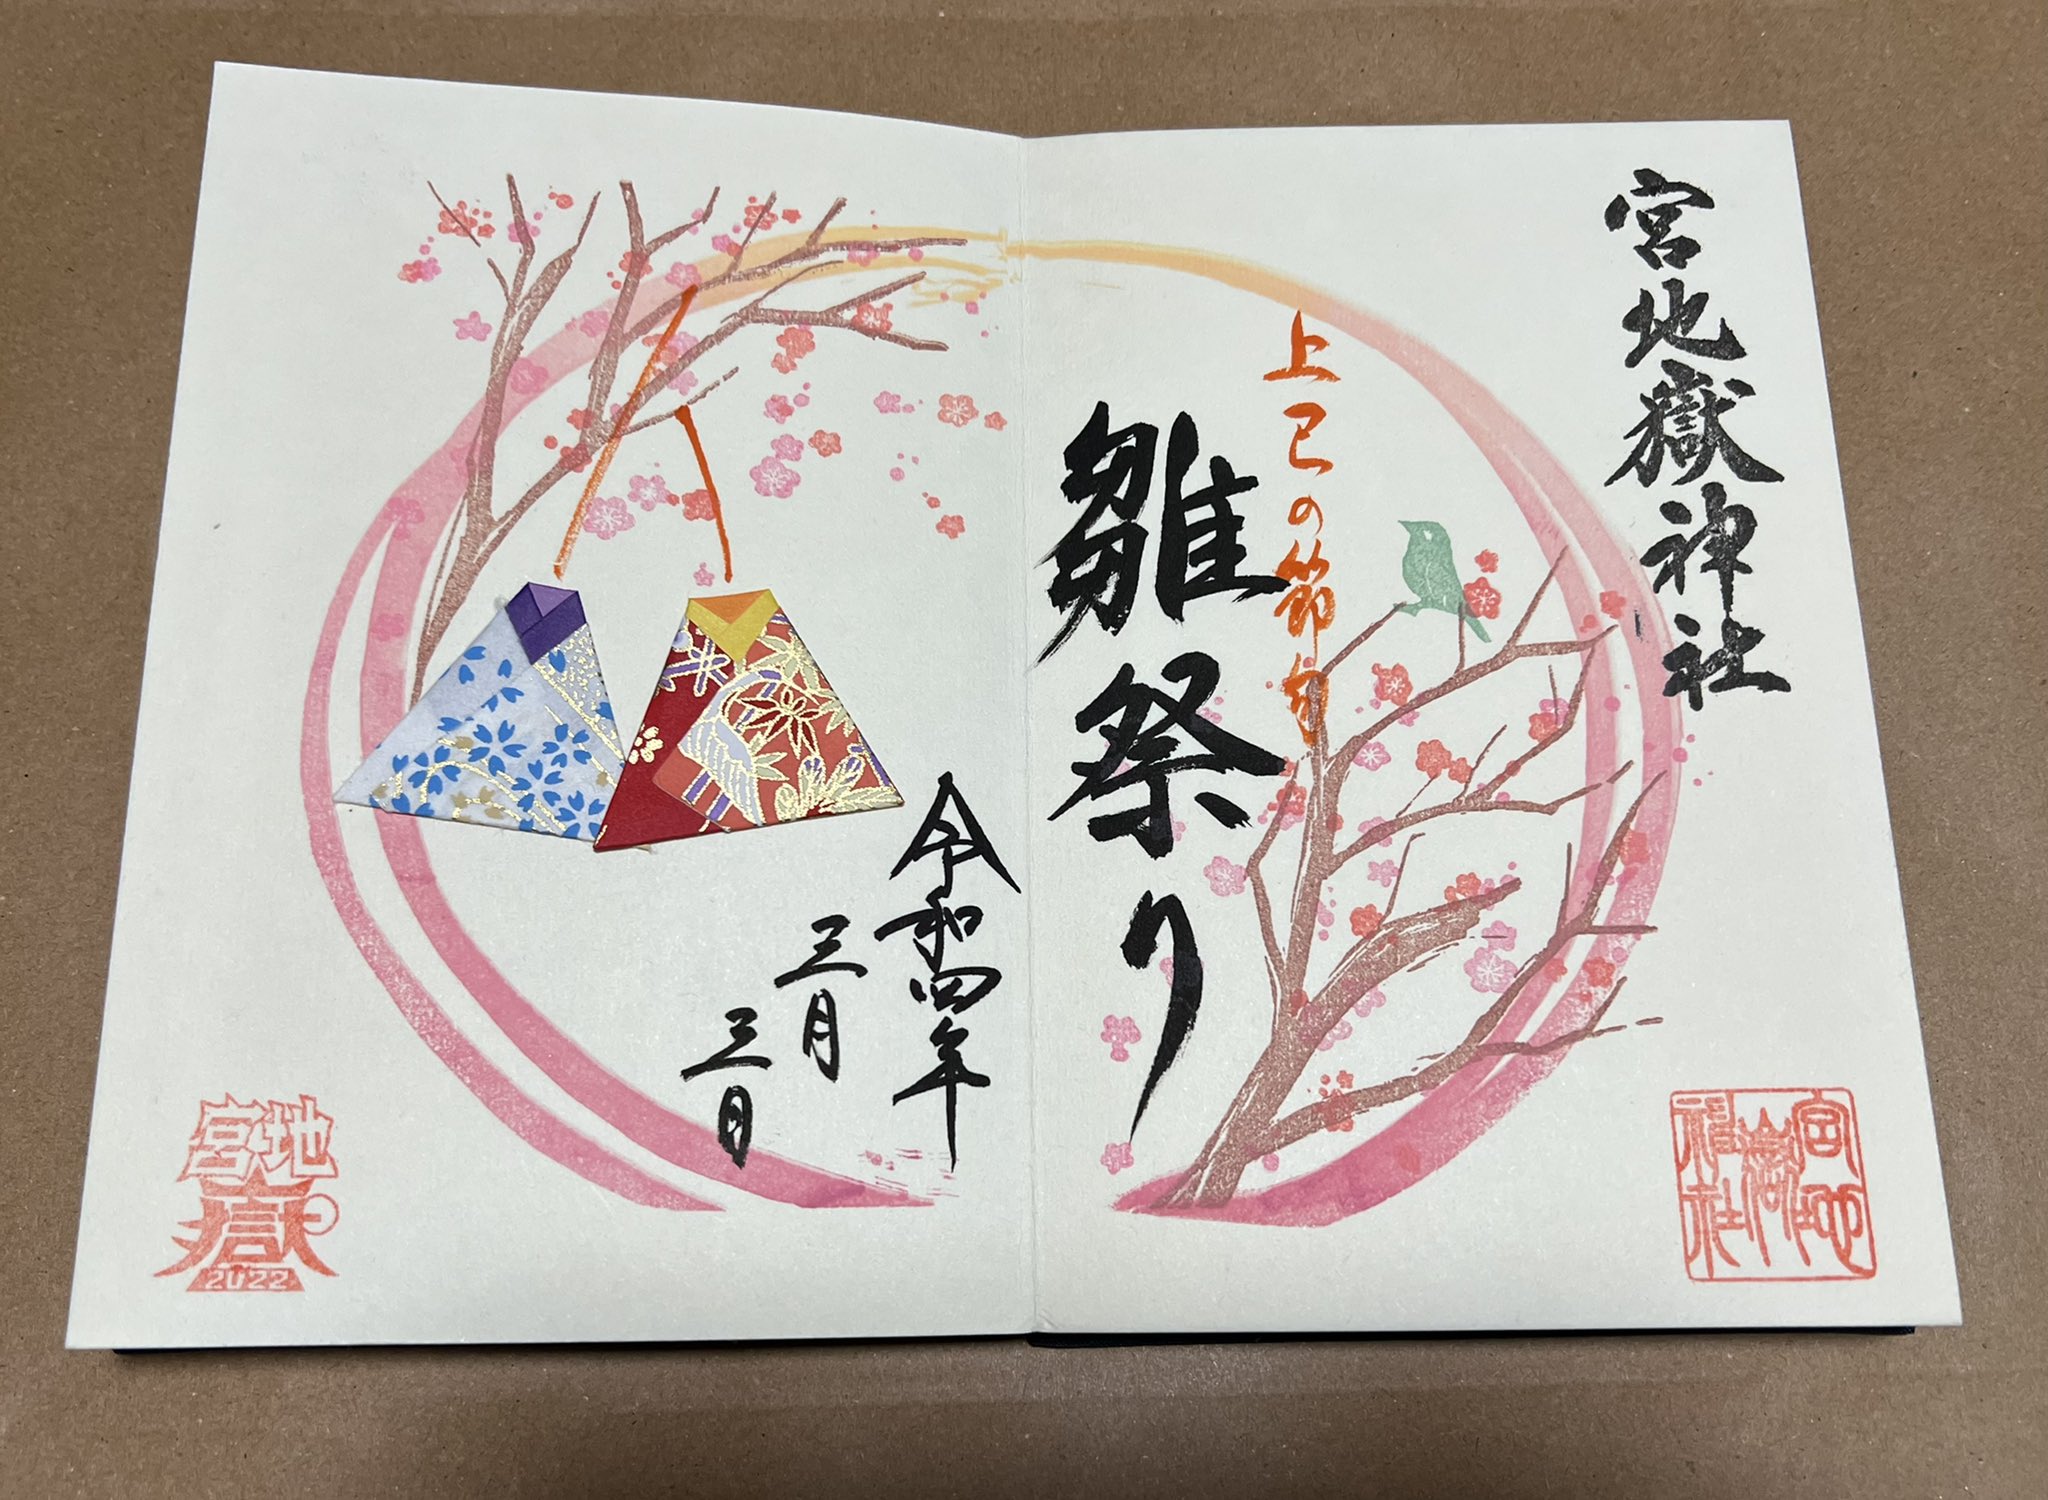 宮地嶽神社
上巳の節句
雛祭り
令和四年
三月
三日
宮地嶽神社
宮地嶽
2022